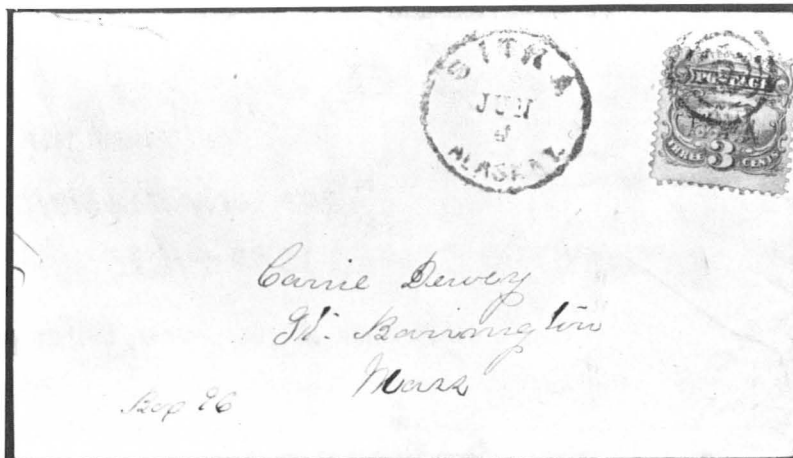 SITKA
JUN
ALASKA T.
POSTAGE
THREE 3 CENTS
Carrie Dewey
Gt. Barrington
Mass
Box 26